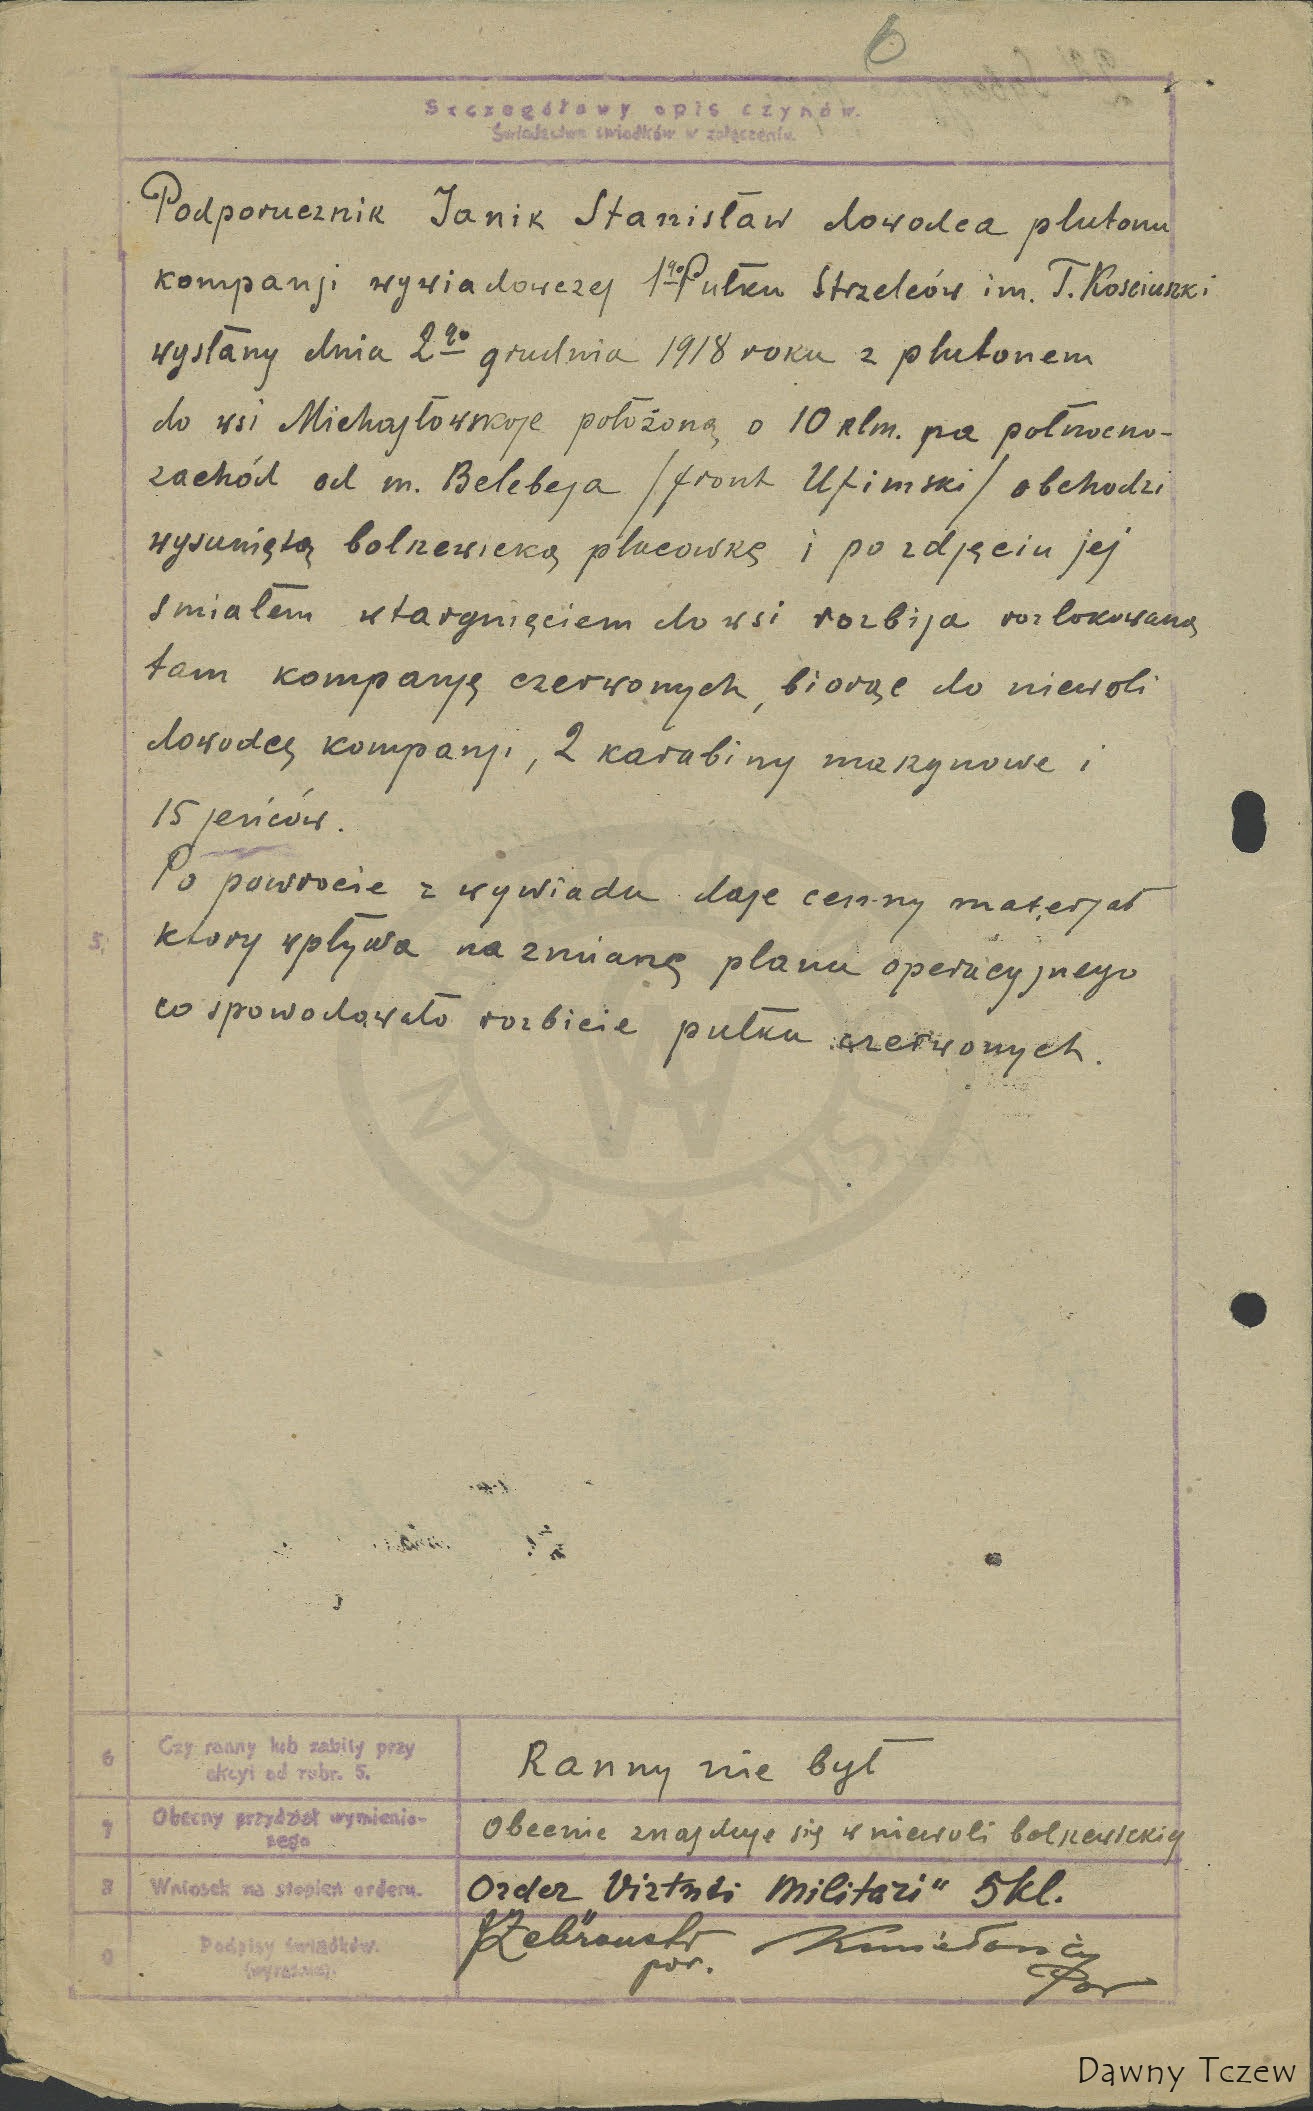 6
Szczegółowy opis czynów.
Świadectwa świadków w załączeniu.
Podporucznik Janik Stanisław dowodca plutonu
kompanji wywiadowczej 1go Pułku Strzelców im. T. Kosciuszki
wysłany dnia 2go grudnia 1918 roku z plutonem
do wsi Michajłowskoje położoną o 10 klm. na połnocno-
zachód od m. Belebeja /front Ufimski/ obchodzi
wysuniętą bolszewicką placowkę i po zdjęciu jej
smiałem wtargnięciem do wsi rozbija rozlokowaną
tam kompanję czerwonych, biorąc do niewoli
dowodcę kompanji, 2 karabiny maszynowe i
15 jeńców.
Po powrocie z wywiadu daje cenny materjał
ktory wpływa na zmianę planu operacyjnego
co spowodowało rozbicie pułku czerwonych.
5.
6 Czy ranny lub zabity przy
akcyi od rubr. 5.
Ranny nie był
7 Obecny przydział wymienio-
nego
Obecnie znajduje się w niewoli bolszewickiej
8 Wniosek na stopień orderu.
Order Virtuti Militari" 5 kl.
9 Podpisy świadków.
(wyraźnie).
Żebrowski
por.
Por
Dawny Tczew